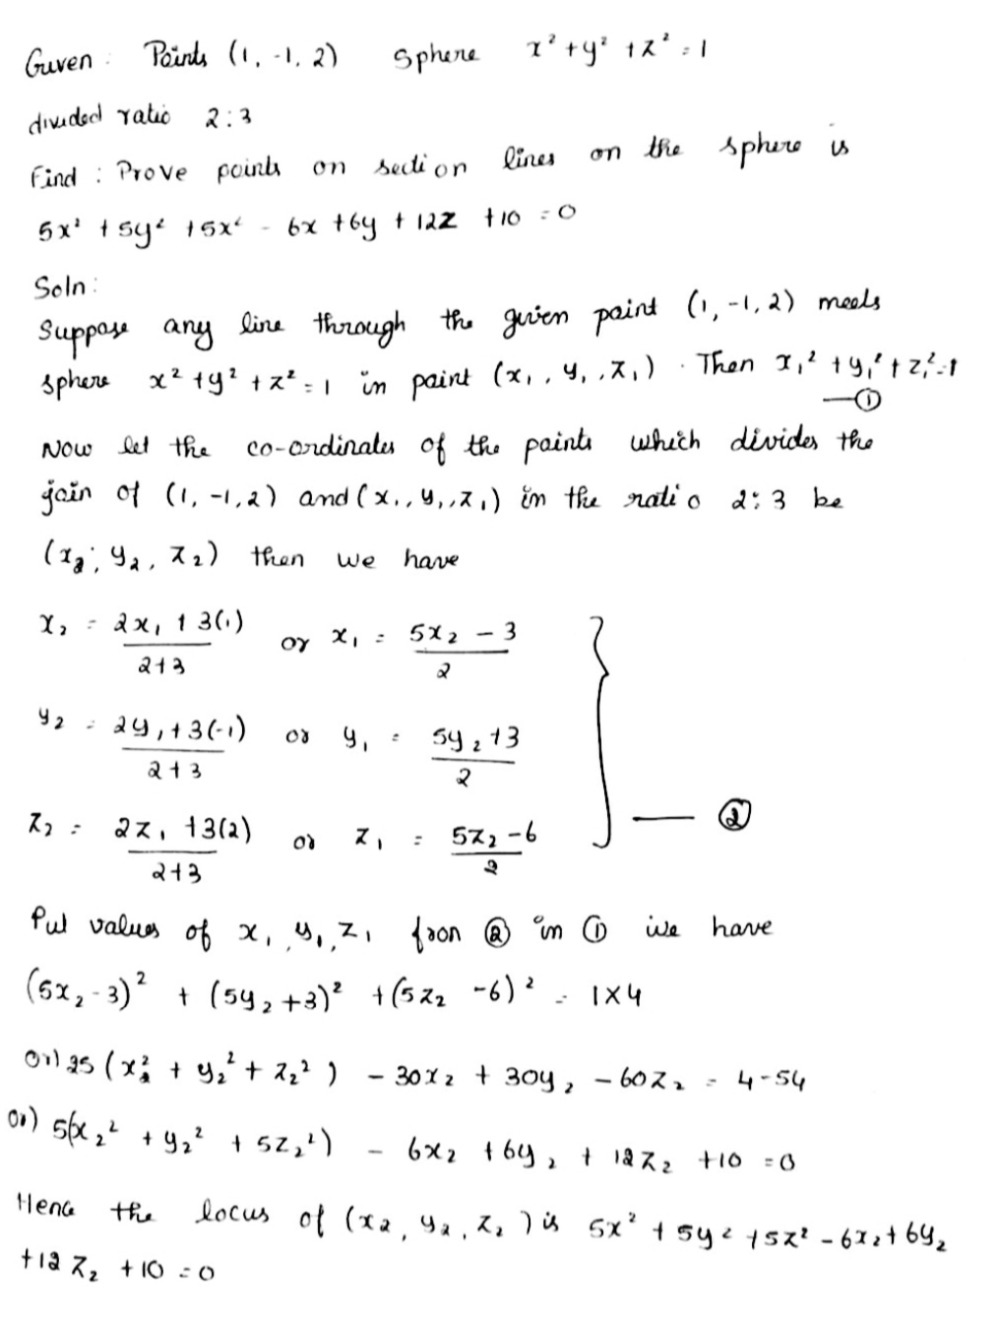 Given : Points (1, -1, 2) Sphere x² + y² + z² = 1
divided ratio 2:3
Find : Prove points on section lines on the sphere is
5x² + 5y² + 5x² - 6x + 6y + 12z + 10 = 0
Soln :
Suppose any line through the given point (1, -1, 2) meets
sphere x² + y² + z² = 1 in point (x₁, y₁, z₁). Then x₁² + y₁² + z₁² = 1
—①
Now let the co-ordinates of the points which divides the
join of (1, -1, 2) and (x₁, y₁, z₁) in the ratio 2:3 be
(x₂, y₂, z₂) then we have
x₂ = (2x₁ + 3(1))/(2+3) or x₁ = (5x₂ - 3)/2
y₂ = (2y₁ + 3(-1))/(2+3) or y₁ = (5y₂ + 3)/2
z₂ = (2z₁ + 3(2))/(2+3) or z₁ = (5z₂ - 6)/2 — ②
Put values of x₁, y₁, z₁ from ② in ① we have
(5x₂ - 3)² + (5y₂ + 3)² + (5z₂ - 6)² = 1×4
or) 25 (x₂² + y₂² + z₂²) - 30x₂ + 30y₂ - 60z₂ = 4 - 54
or) 5(x₂² + y₂² + 5z₂²) - 6x₂ + 6y₂ + 12z₂ + 10 = 0
Hence the locus of (x₂, y₂, z₂) is 5x² + 5y² + 5z² - 6x₂ + 6y₂
+ 12z₂ + 10 = 0